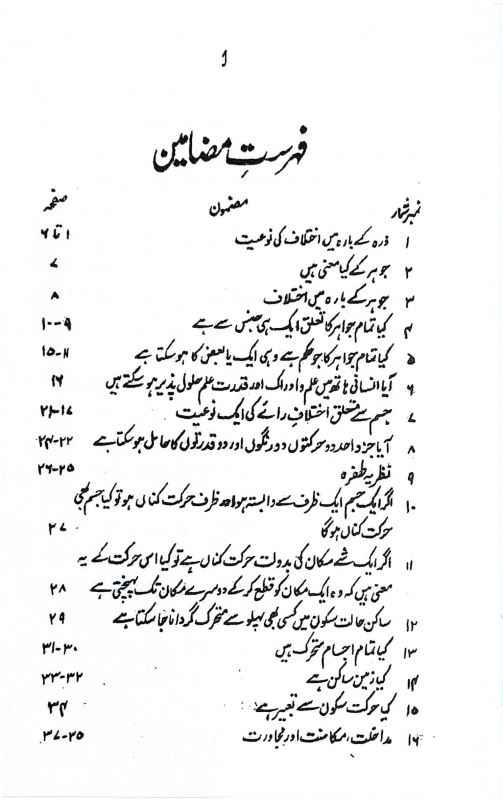 1
فہرستِ مضامین
نمبرشمار مضمون صفحہ
۱ ذرہ کے بارہ میں اختلاف کی نوعیت ۱ تا ۶
۲ جوہر کے کیا معنی ہیں ۷
۳ جوہر کے بارہ میں اختلاف ۸
۴ کیا تمام جواہر کا تعلق ایک ہی جنس سے ہے ۹-۱۰
۵ کیا تمام جواہر کا جو حکم ہے وہی ایک یا بعض کا ہو سکتا ہے ۱۱-۱۵
۶ آیا انسانی ہاتھ میں علم و ادراک اور قدرت علم حلول پذیر ہو سکتے ہیں ۱۶
۷ جسم سے متعلق اختلافِ رائے کی ایک نوعیت ۱۷-۲۱
۸ آیا جزو احد دو حرکتوں دو رنگوں اور دو قدرتوں کا حامل ہو سکتا ہے ۲۲-۲۴
۹ نظریہ طفرہ ۲۵-۲۶
۱۰ اگر ایک جسم ایک ظرف سے وابستہ ہو اور ظرف حرکت کناں ہو تو کیا جسم بھی
حرکت کناں ہو گا ۲۷
۱۱ اگر ایک شے مکان کی بدولت حرکت کناں ہے تو کیا اس حرکت کے یہ
معنی ہیں کہ وہ ایک مکان کو قطع کر کے دوسرے مکان تک پہنچتی ہے ۲۸
۱۲ ساکن حالت سکون میں کسی بھی پہلو سے متحرک گردانا جا سکتا ہے ۲۹
۱۳ کیا تمام اجسام متحرک ہیں ۳۰-۳۱
۱۴ کیا زمین ساکن ہے ۳۲-۳۳
۱۵ کیا حرکت سکون سے تعبیر ہے: ۳۴
۱۶ مداخلت، مکامنت اور مجاورت ۳۵-۳۷